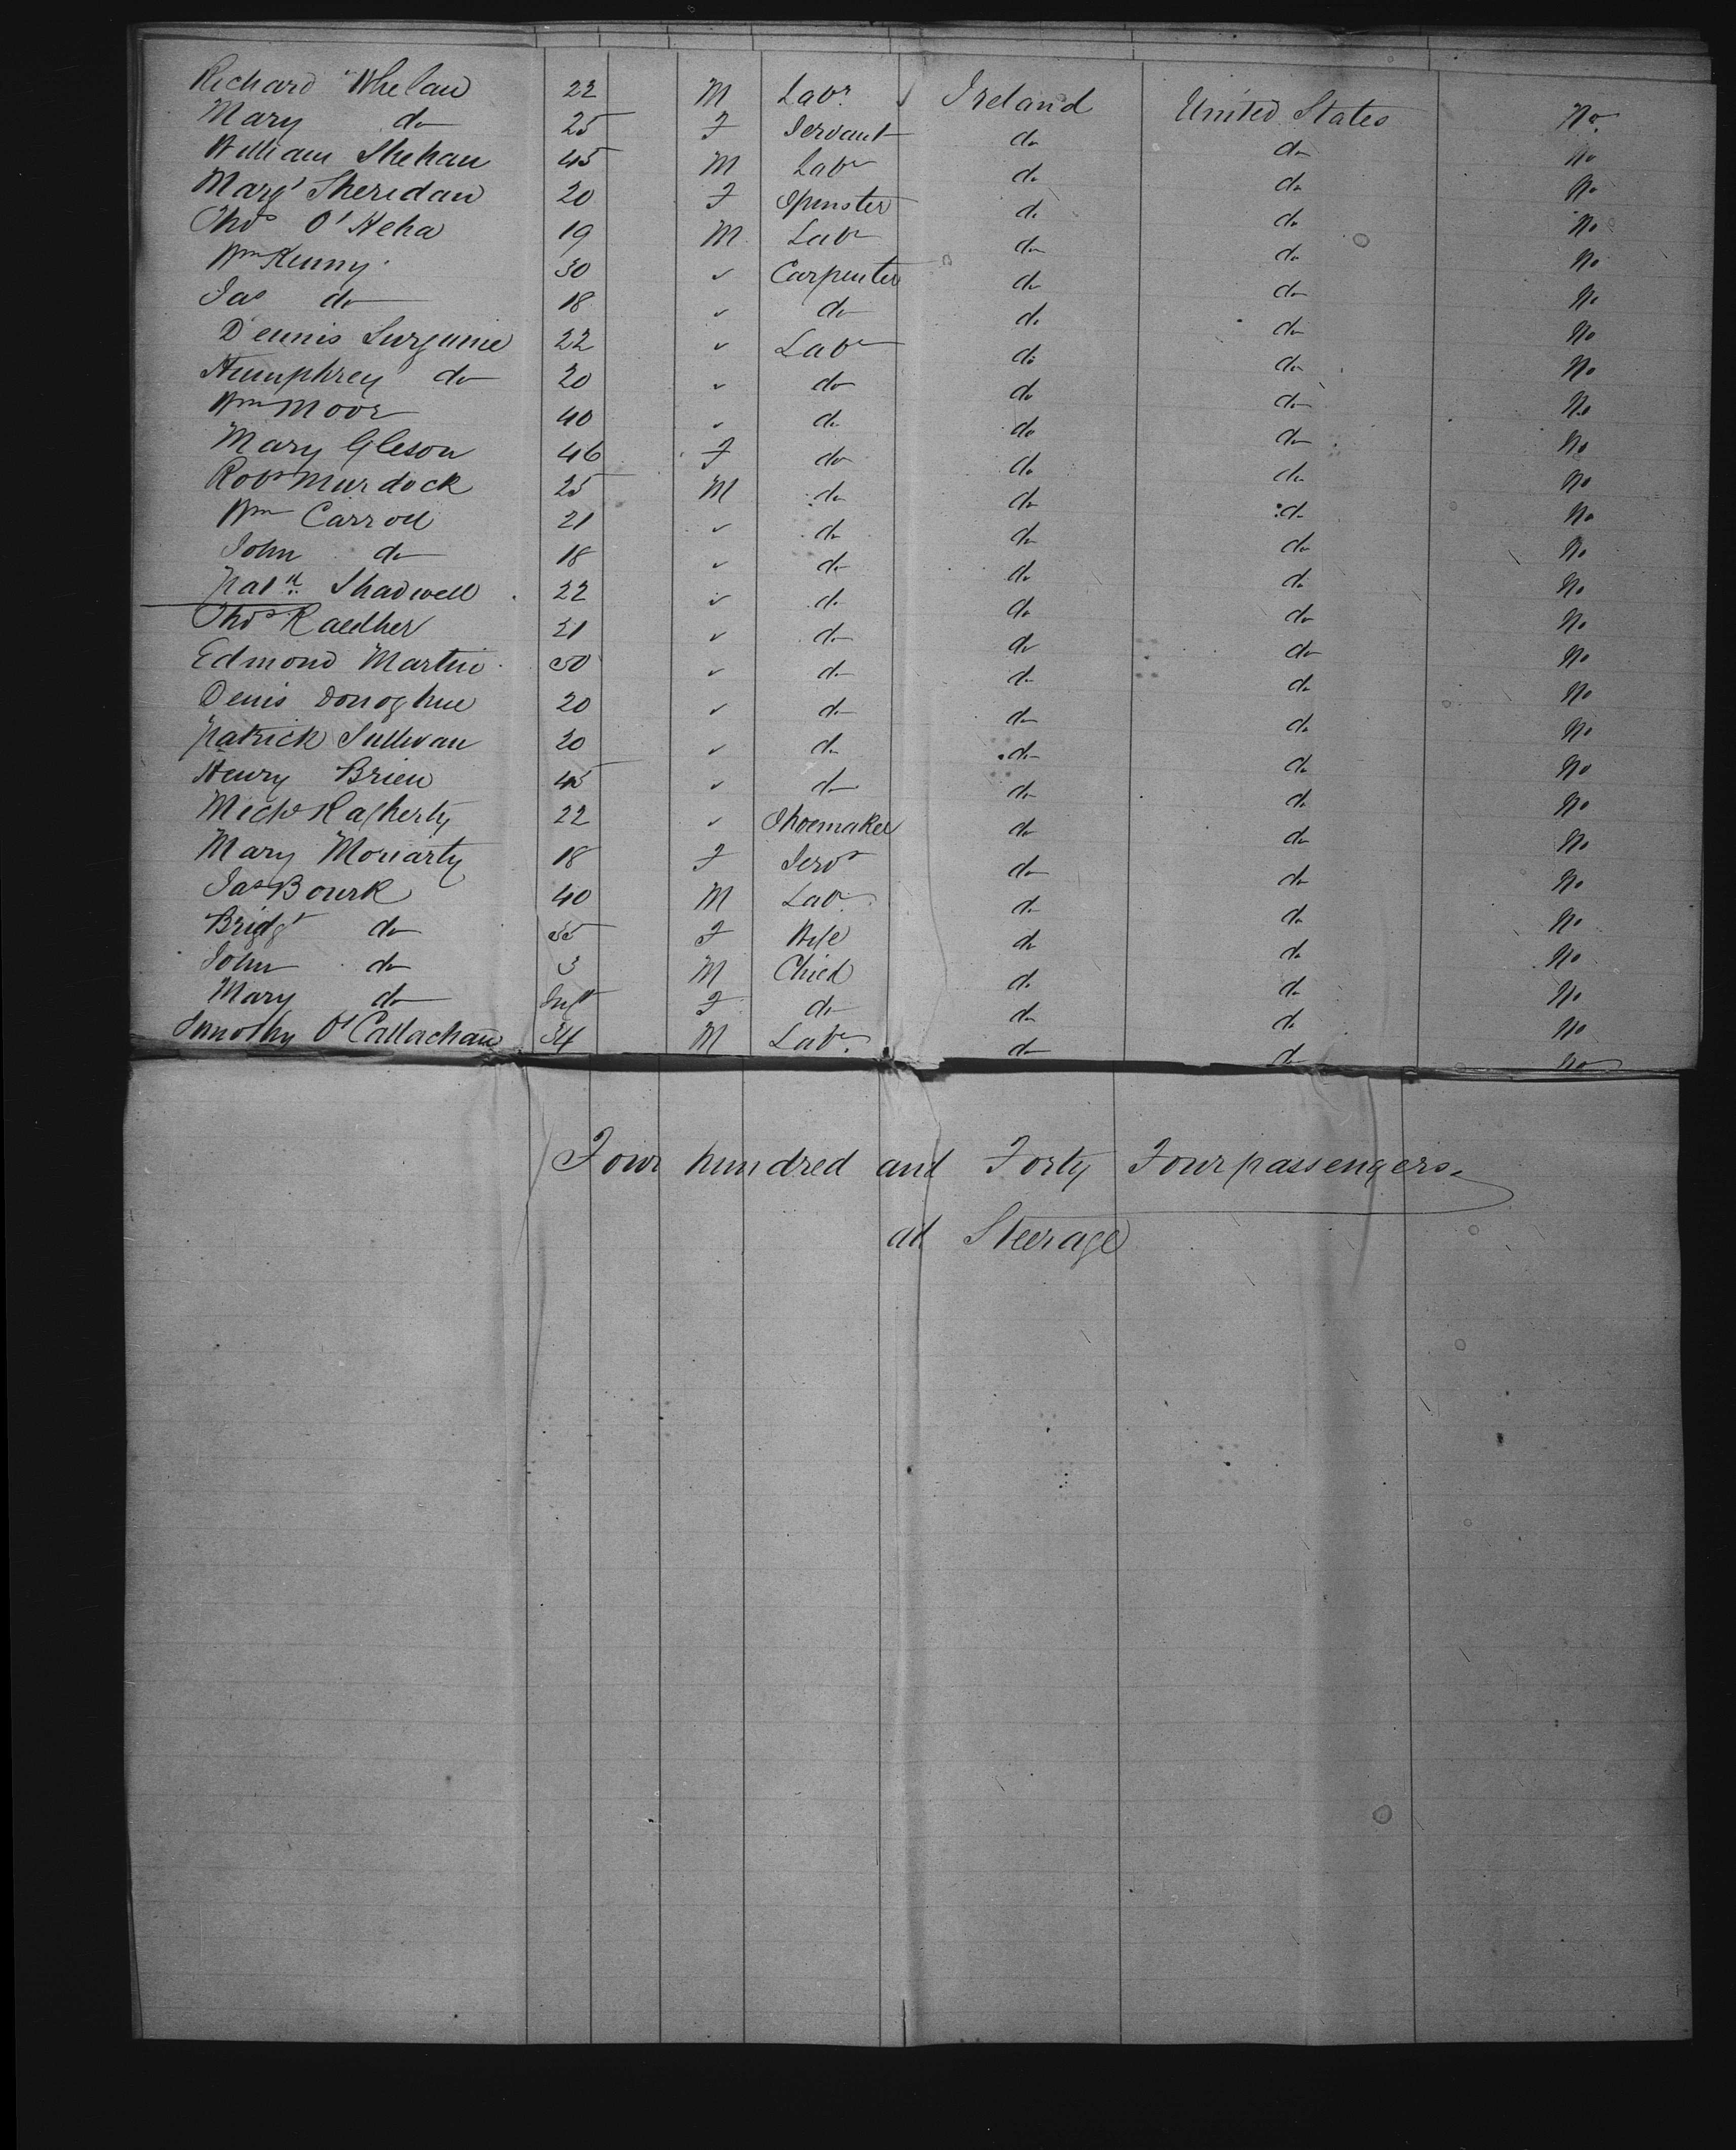 Richard Whelan 22 M Labr. Ireland United States No.
Mary do 25 F Servant do do No
William Shehan 45 M Labr do do No
Margt Sheridan 20 F Spinster do do No
Thos O'Keha 19 M Labr do do No
Wm Kenny 30 ✓ Carpenter do do No
Jas do 18 ✓ do do do No
Dennis 22 ✓ Labr do do No
Humphrey do 20 ✓ do do do No
Wm Moor 40 ✓ do do do No
Mary Gleson 46 F do do do No
Robt Murdock 25 M do do do No
Wm Carroll 21 ✓ do do do No
John do 18 ✓ do do do No
Patk Shadwell 22 ✓ do do do No
Thos 21 ✓ do do do No
Edmond Martin 30 ✓ do do do No
Denis Donoghue 20 ✓ do do do No
Patrick Sullivan 20 ✓ do do do No
Henry Brien 45 ✓ do do do No
Michl Rafherty 22 ✓ Shoemaker do do No
Mary Moriarty 18 F Servt do do No
Jas Bourk 40 M Labr. do do No
Bridgt do 35 F Wife do do No
John do 3 M Child do do No
Mary do Inft F do do do No
Timothy O'Callachan 34 M Labr. do do No
Four hundred and Forty Four passengers.
at Steerage